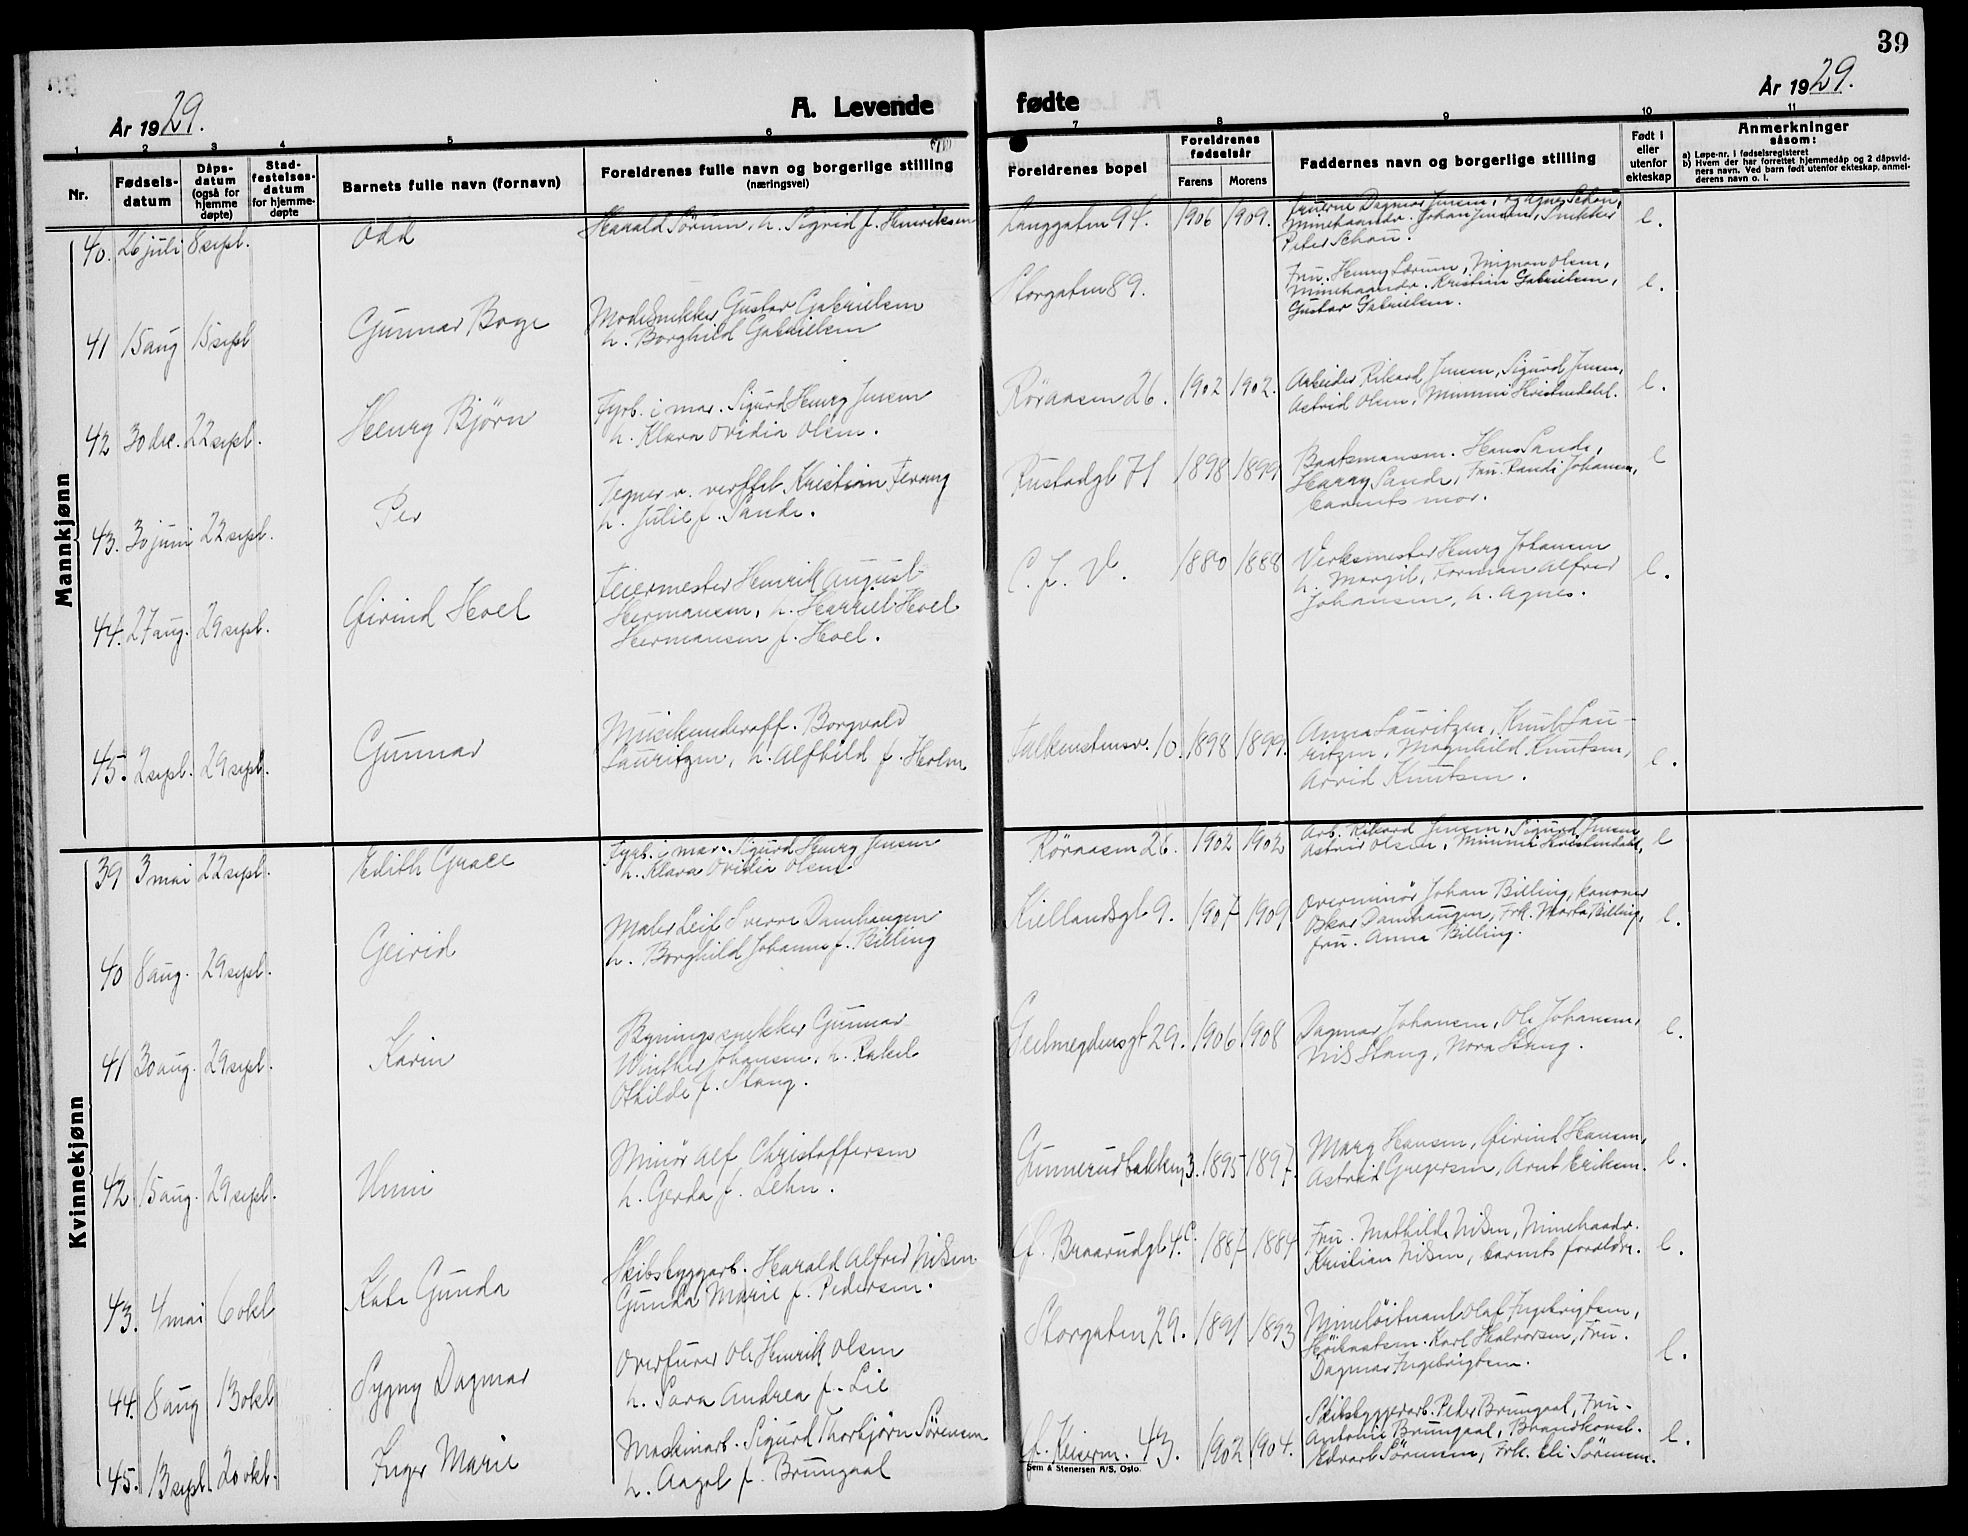 39
År 1929.
A. Levende
fødte
År 1929.
1 2 3 4 5 6 7 8 9 10 11
Nr.
Fødsels-
datum
Dåps-
datum
(også for
hjemme
døpte)
Stad-
festelses-
datum
for hjemme-
døpte
Barnets fulle navn (fornavn)
Foreldrenes fulle navn og borgerlige stilling
(næringsvei)
Foreldrenes bopel
Foreldrenes
fødselsår
Farens Morens
Faddernes navn og borgerlige stilling
Født i
eller
utenfor
ekteskap
Anmerkninger
såsom:
a) Løpe-nr. i fødselsregisteret
b) Hvem der har forrettet hjemmedåp og 2 dåpsvid-
ners navn. Ved barn født utenfor ekteskap, anmel-
derens navn o. l.
Mannkjønn
40. 26 juli 8 sept. Odd
Harald Sörum, h. Sigrid f. Henriksen
Langgaten 94. 1906 1909.
Fruerne Dagmar Jensen, og Agnes Schou,
Minehaandv. Johan Jensen, Snekker
Peter Schou.
e.
41 15 aug 15 sept Gunnar Boye
Modelsnekker Gustav Gabrielsen
h. Borghild Gabrielsen
Storgaten 89.
Fru. Henny Lærum, Mignon Olsen,
Minehaandv. Kristian Gabrielsen,
Gustav Gabrielsen.
e.
42 30 dec. 22 sept. Henry Bjørn
Fyrb. i mar. Sigurd Henry Jensen
h. Klara Ovidia Olsen.
Röraasen 26. 1902 1902.
Arbeider Rikard Jensen, Sigurd Jensen,
Astrid Olsen, Mimmi Kristendahl.
e.
43. 30 juni 22 sept. Per
Tegner v. verftet Kristian Ferang
h. Julie f. Sande.
Rustadgt 71 1898 1899
Baatsmansm. Hans Sande,
Harry Sande, Fru. Randi Johansen,
barnets mor.
e
44. 27 aug. 29 sept. Øivind Hoel
Feiermester Henrik August
Hermansen, h. Harriet Hoel
Hermansen f. Hoel.
C. J. V. 1880 1888
Verksmester Henry Johansen
h. Margit, Forman Alfred
Johansen, h. Agnes.
e.
45. 2 sept. 29 sept. Gunnar
Musikunderoff. Borgvald
Lauritzen, h. Alfhild f. Holm
Falkenstensv. 10. 1898 1899.
Anna Lauritzen, Knut Lau-
ritzen, Magnhild Knutsen,
Arvid Knutsen.
e.
Kvinnekjønn
39 3 mai 22 sept. Edith Grace
Fyrb. i mar. Sigurd Henry Jensen
h. Klara Ovidia Olsen
Röraasen 26. 1902 1902
Arb. Rikard Jensen, Sigurd Jensen
Astrid Olsen, Mimmi Kristendahl,
e
40 8 aug. 29 sept. Geirid
Maler Leif Sverre Damhaugen
h. Borghild Johanne f. Billing
Kiellandsgt 9. 1907 1909
Overminör Johan Billing, kanoner
Oskar Damhaugen, Frk. Marta Billing,
fru. Anna Billing.
e.
41 30 aug. 29 sept. Karin
Bygningssnekker Gunnar
Winther Johansen, h. Rakel
Othilde f. Stang.
Geelmeydensgt 29. 1906 1908
Dagmar Johansen, Ole Johansen,
Nils Stang, Nora Stang.
e.
42 15 aug. 29 sept. Unni
Minör Alf Christoffersen
h. Gerda f. Lehn.
Gunnerudbakken 3. 1895 1897.
Mary Hansen, Øivind Hansen,
Astrid Gregersen, Arnt Eriksen.
e.
43. 4 mai 6 okt Kate Gunda
Skibsbyggarb. Harald Alfred Nilsen
Gunda Marie f. Pedersen.
f. Braarudgt 4.c. 1887 1884
Fru. Mathilde Nilsen, Minehaandv.
Kristian Nilsen, barnets forældre.
e.
44. 8 aug 13 okt Sygny Dagmar
Overfurer Ole Henrik Olsen
h. Sara Andrea f. Lie
Storgaten 29. 1891 1893
Mineløitnant Olaf Ingebrigtsen,
Karl Halvorsen, Fru.
Dagmar Ingebrigtsen.
e.
45. 13 sept. 20 okt. Inger Marie
Maskinarb. Sigurd Thorbjørn Sörensen
h. Aagot f. Brungaal
f. Keiserm. 43. 1902 1904.
Skibsbyggerarb. Peder Brungaal, Fru.
Antonie Brungaal, Brandkonst.
Edvart Sörensen, Frk. Eli Sörensen.
e.
Sem & Stenersen A/S, Oslo.